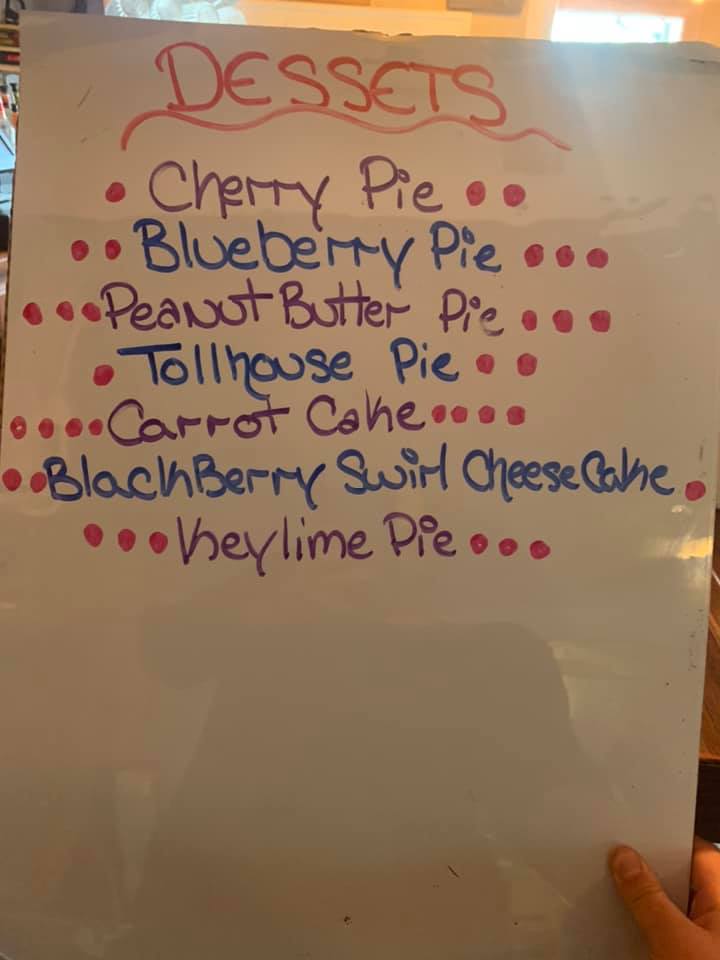 DESSETS
• Cherry Pie • •
• • Blueberry Pie • • •
• • • Peanut Butter Pie • • •
• Tollhouse Pie • •
• • • • Carrot Cake • • • •
• • BlackBerry Swirl Cheese Cake •
• • • Keylime Pie • • •